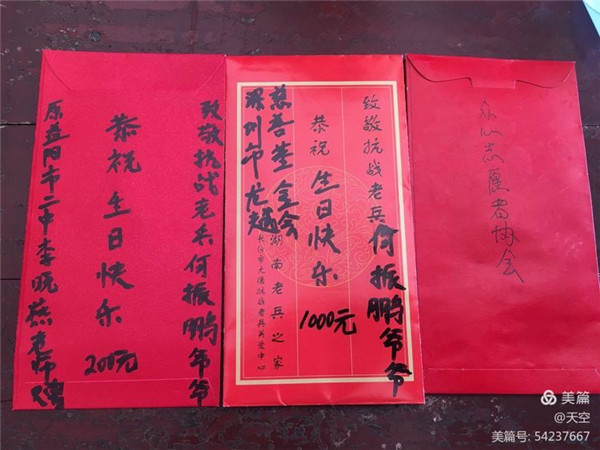 致敬抗战老兵何振鹏爷爷
恭祝 生日快乐
200元
原益阳市二中李晓燕老师
致敬抗战老兵何振鹏爷爷
恭祝 生日快乐
1000元
深圳市龙越
慈善基金会
湖南老兵之家
志愿者协会
美篇
@天空
美篇号: 54237667